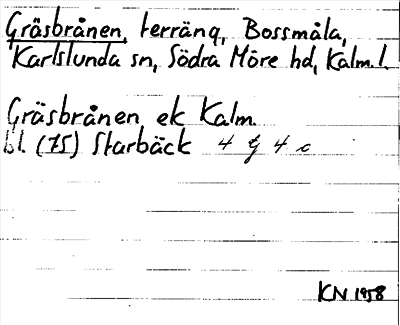 Gräsbrånen, terräng, Bossmåla,
Karlslunda sn, Södra Möre hd, Kalm. l.
Gräsbrånen ek Kalm.
bl. (75) Starbäck 4 G 4 c
KN 1958